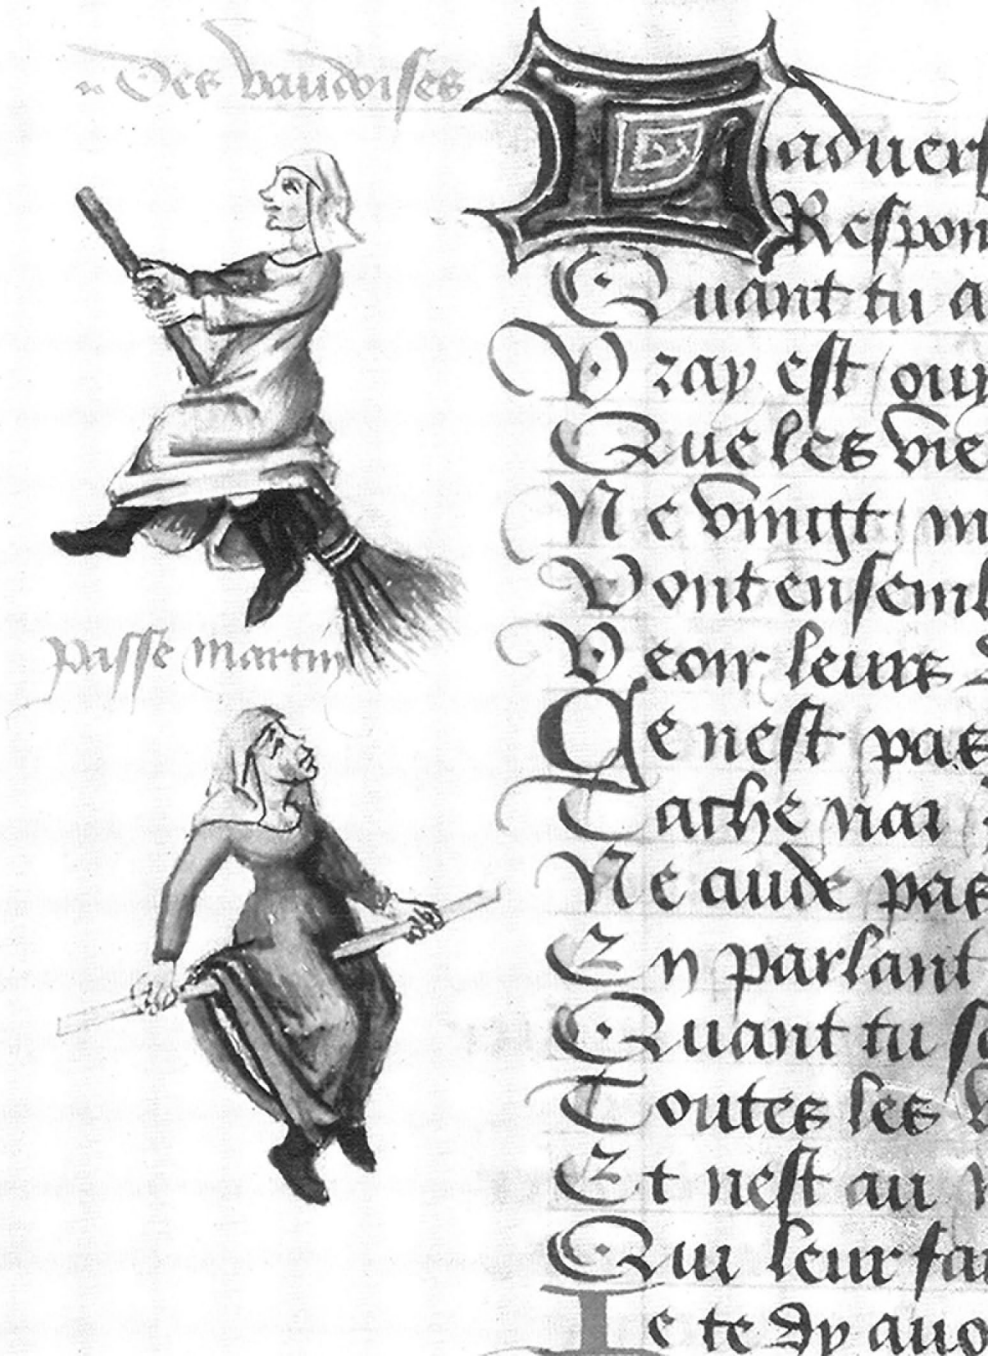 Des vaudoises
passe martin
Ladvers
Respon
Quant tu a
Vray est ouy
Que les vie
Ne vingt m
Vont ensemb
Veoir leurs
Ce nest pas
Tache
Ne cuide pas
En parlant
Quant tu s
Toutes les
Et nest au
Qui leur fa
Je te dy auo